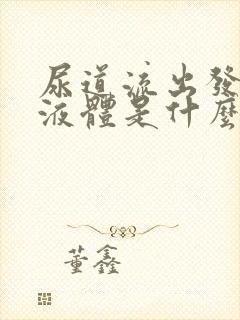 尿道流出發
液體是什麼
董鑫